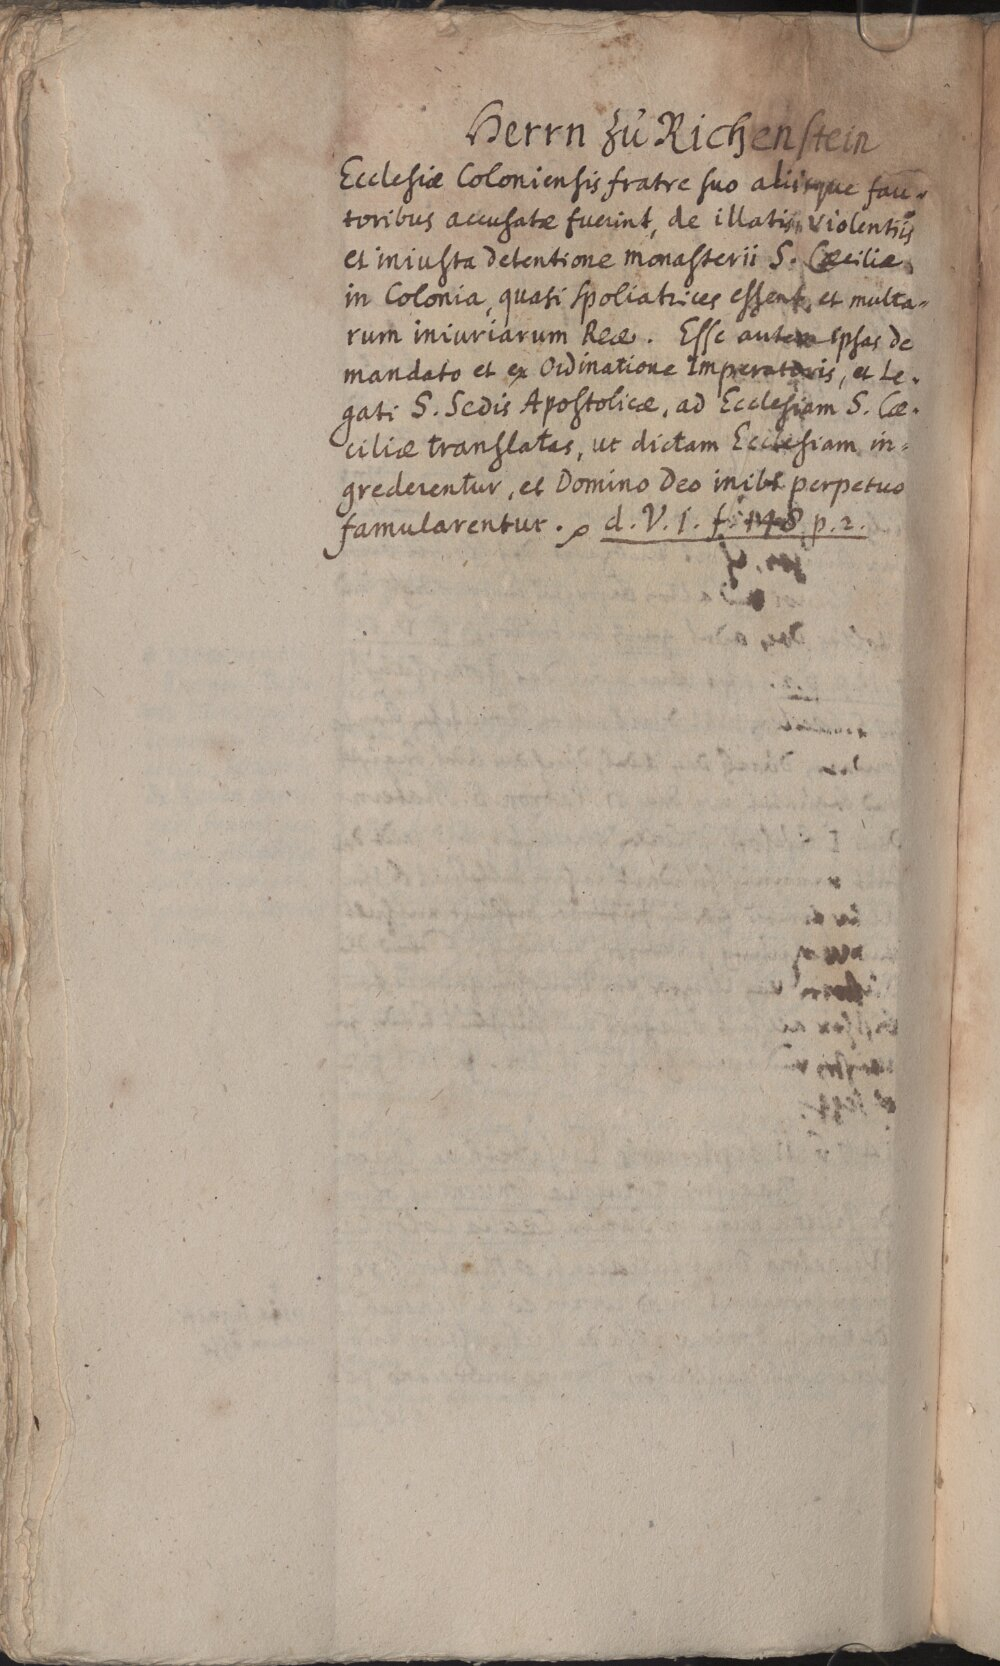 Herrn zů Richenstein
Ecclesiæ Coloniensis fratre suo aliisque fau-
toribus accusatæ fuerint, de illatis violentiis
et iniusta detentione monasterii S. Cæciliæ
in Colonia, quasi spoliatrices essent, et multa-
rum iniuriarum Reæ. Esse autem ipsas de
mandato et ex Ordinatione Imperatoris, et Le-
gati S. Sedis Apostolicæ, ad Ecclesiam S. Cæ-
ciliæ translatas, ut dictam Ecclesiam in-
grederentur, et Domino Deo inibi perpetuo
famularentur. d. V. 1. f. 148 p. 2.